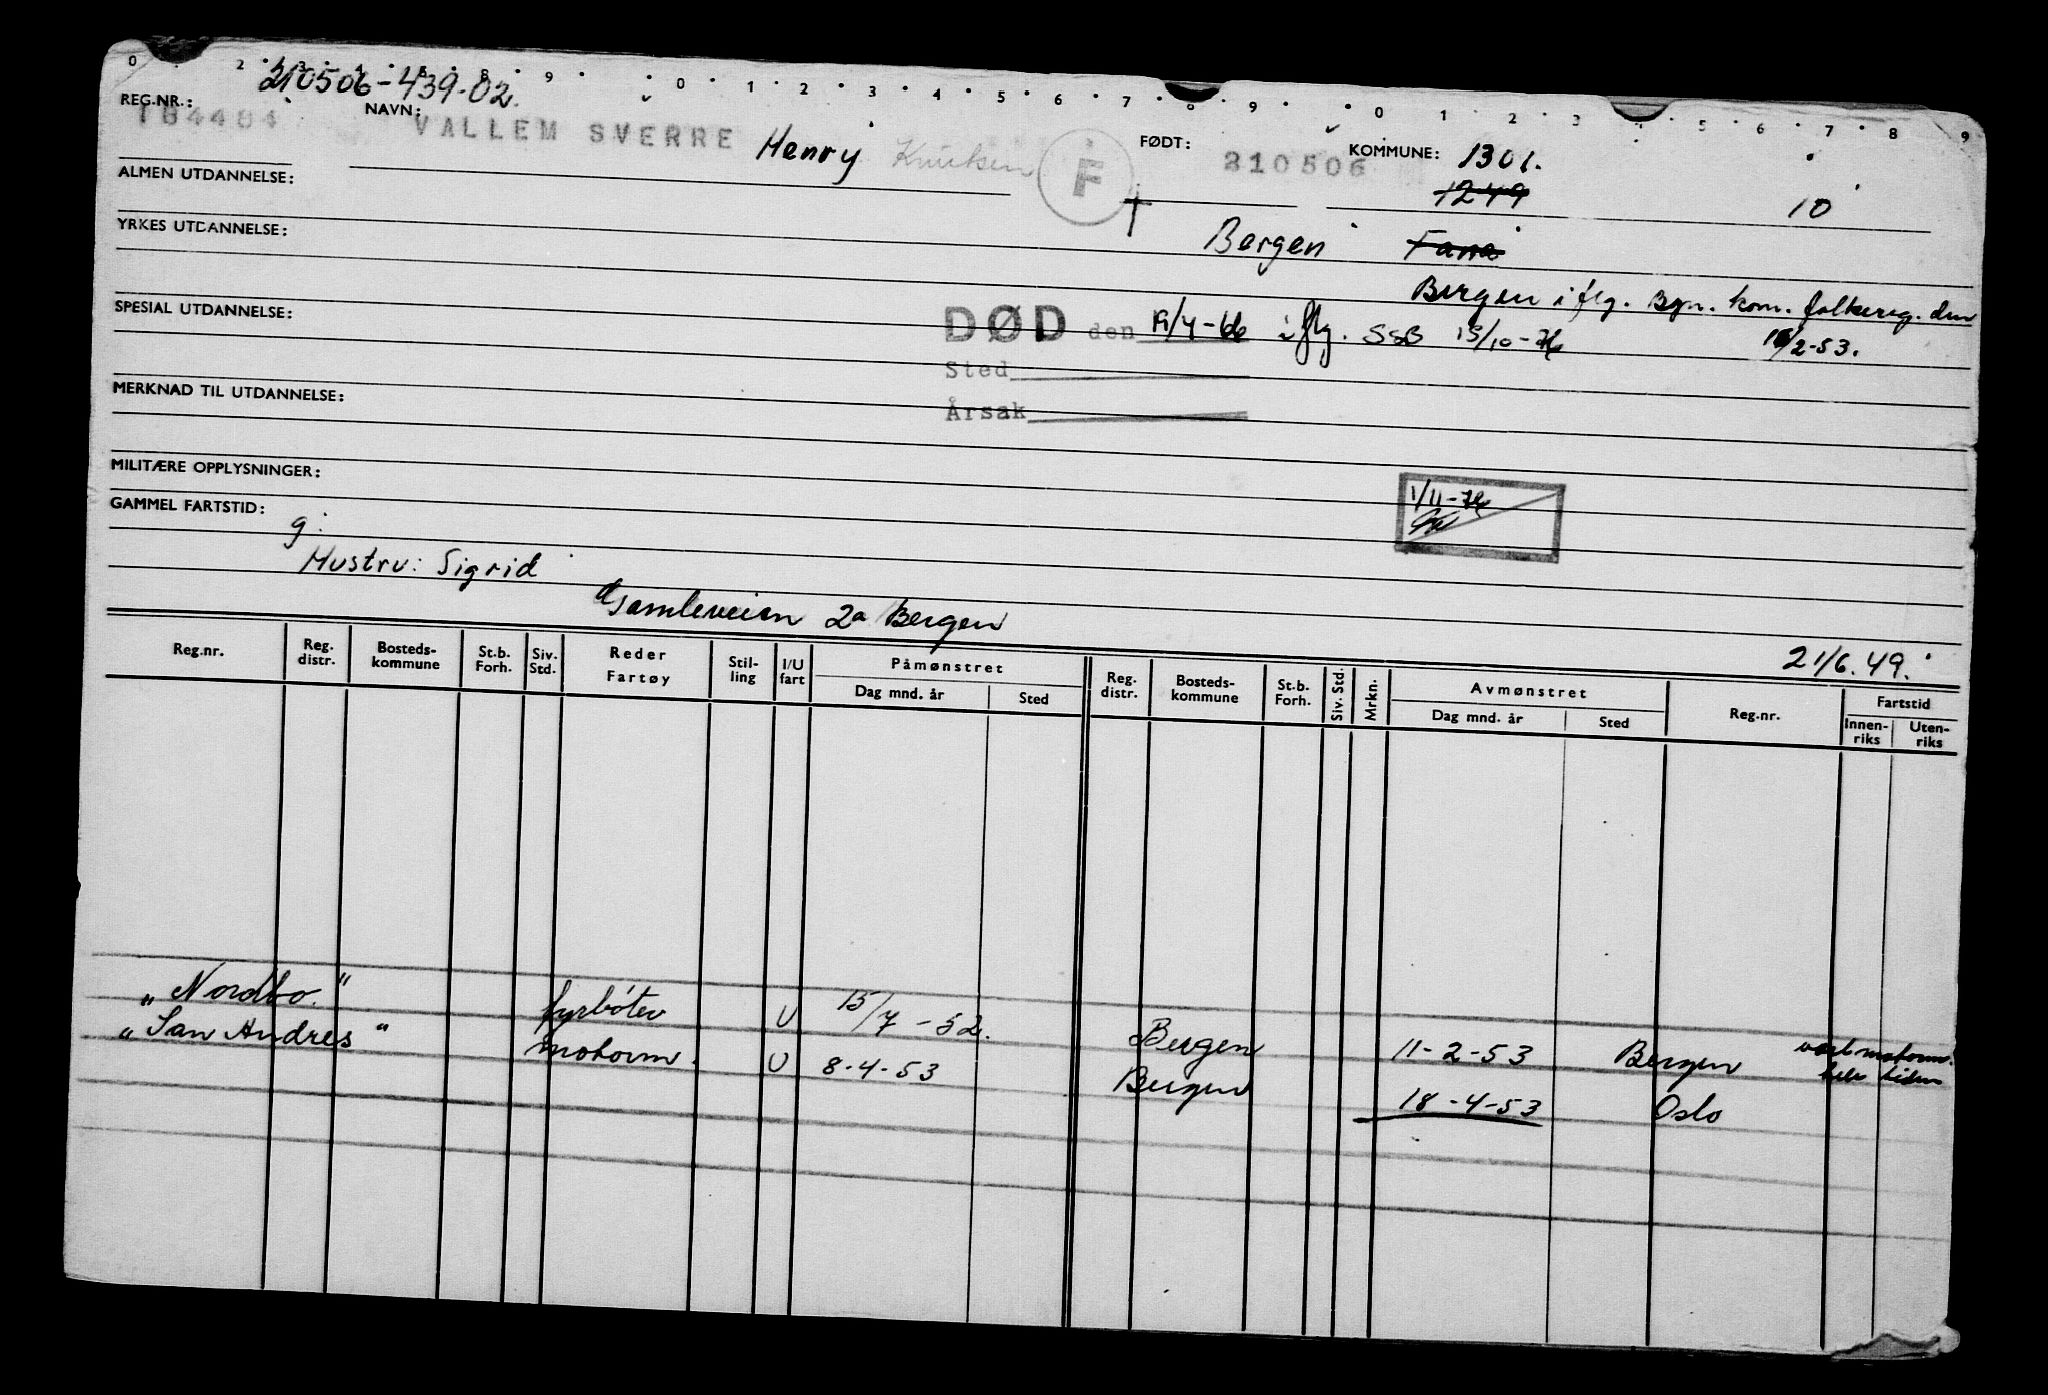 0 2 3 4 5 8 9 0 1 2 3 4 5 6 7 8 9 0 1 2 3 4 5 6 7 8 9
210506-439-02.
REG.NR.: 184484 NAVN: VALLEM SVERRE Henry Knutsen F FØDT: 210506 KOMMUNE: 1301.
1249
ALMEN UTDANNELSE: 10
YRKES UTDANNELSE: Bergen Fana
Bergen i flg. Bgn. kom. folkereg. den
SPESIAL UTDANNELSE: DØD den 19/4-66 i flg. SSB 15/10-76 2-53.
Sted
MERKNAD TIL UTDANNELSE: Årsak
MILITÆRE OPPLYSNINGER: 1/11-76
GAMMEL FARTSTID:
g:
Hustru: Sigrid
Gamleveien 2a Bergen
21/6.49.
Reg.nr. Reg. distr. Bosteds-kommune St.b. Forh. Siv. Std. Reder Fartøy Stil-ling I/U fart Påmønstret Reg. distr. Bosteds-kommune St.b. Forh. Siv. Std. Mrkn. Avmønstret Reg.nr. Fartstid
Dag mnd. år Sted Dag mnd. år Sted Innen-riks Uten-riks
"Nordbo." fyrbøter U 15/7-52. Bergen 11-2-53 Bergen vært motorm. hele tiden
"San Andres" motorm. U 8-4-53 Bergen 18-4-53 Oslo